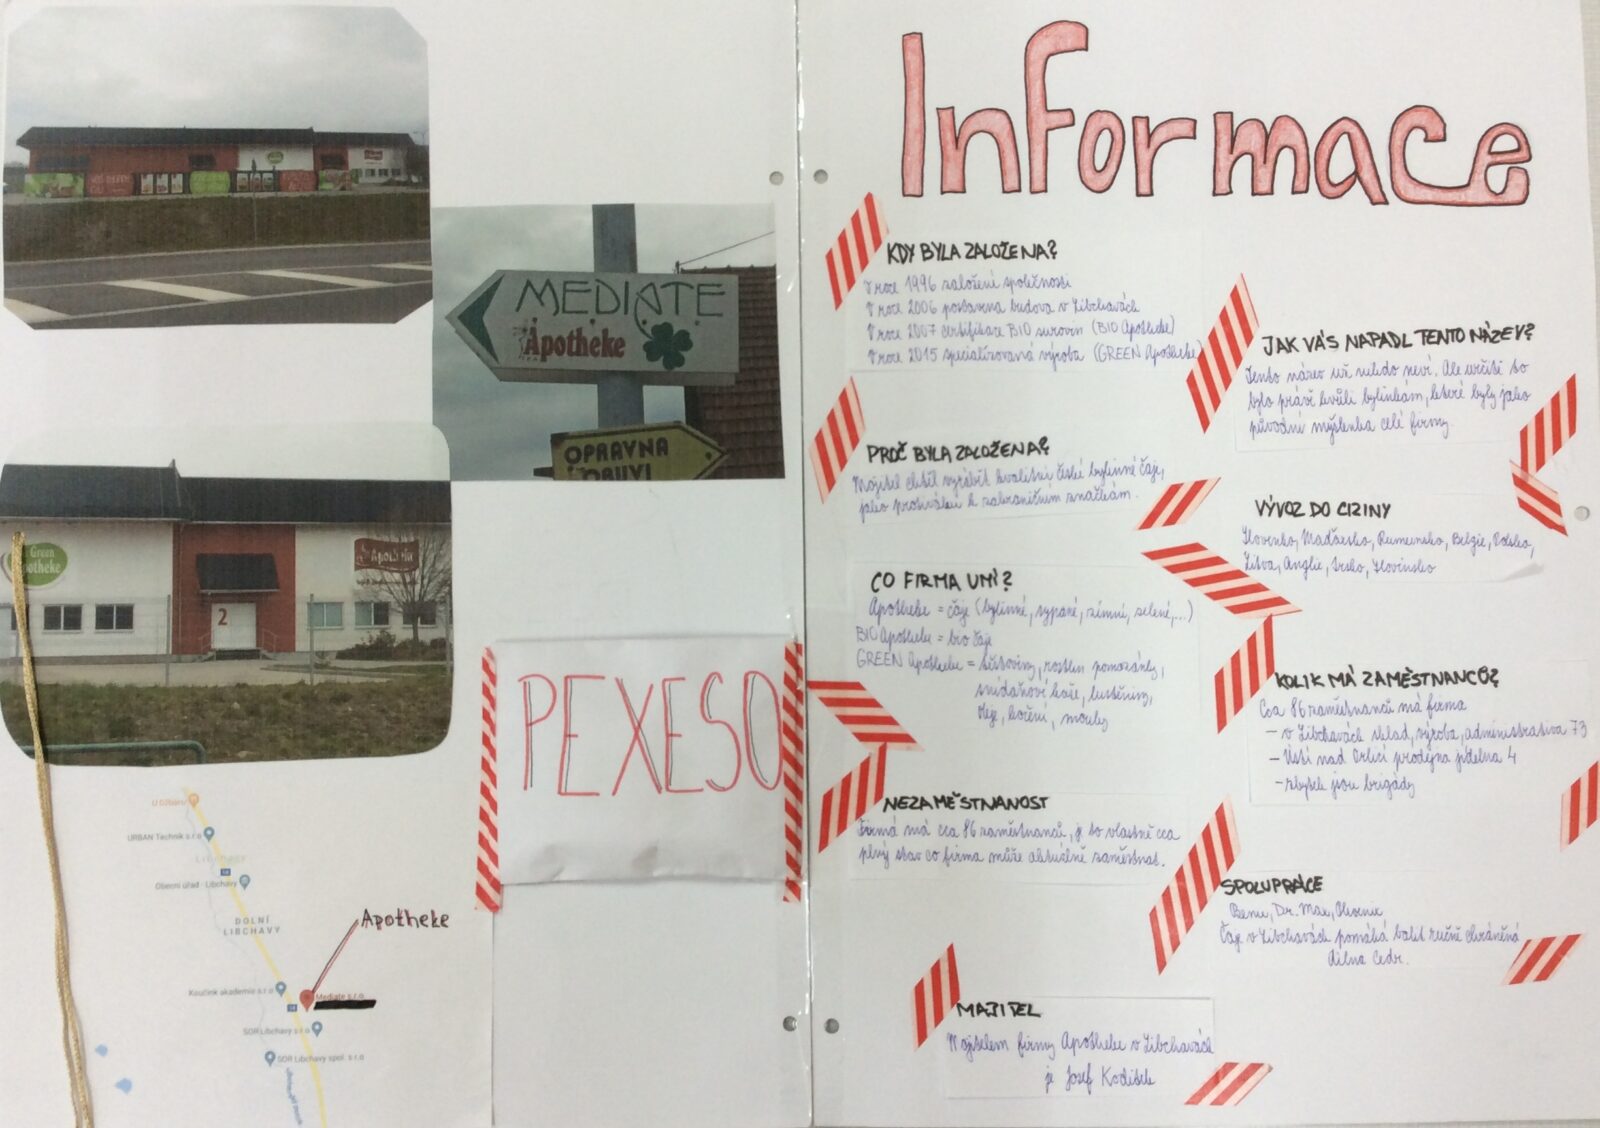 MEDIATE
Apotheke
OPRAVNA
OBUVI
Green
Apotheke
Apotheke
2
PEXESO
U Džbánu
URBAN Technik s.r.o
LIBCHAVY
14
Obecní úřad - Libchavy
DOLNÍ
LIBCHAVY
Apotheke
Koučink akademie s.r.o
14
Mediate s.r.o
SOR Libchavy s.r.o
SOR Libchavy spol. s r.o
Informace
KDY BYLA ZALOŽENA?
V roce 1996 založení společnosti
V roce 2006 postavena budova v Libchavách
V roce 2007 certifikace BIO surovin (BIO Apotheke)
V roce 2015 specializovaná výroba (GREEN Apotheke)
PROČ BYLA ZALOŽENA?
Majitel chtěl vyrábět kvalitní české bylinné čaje,
jako protiváhu k zahraničním značkám.
CO FIRMA UMÍ?
Apotheke = čaje (bylinné, sypané, zimní, zelené,...)
BIO Apotheke = bio čaje
GREEN Apotheke = těstoviny, rostlin pomazánky,
snídaňové kaše, luštěniny,
oleje, koření, mouky
NEZAMĚSTNANOST
Firma má cca 86 zaměstnanců, je to vlastně cca
plný stav co firma může aktuálně zaměstnat.
MAJITEL
Majitelem firmy Apotheke v Libchavách
je Josef Kodíšek
JAK VÁS NAPADL TENTO NÁZEV?
Tento název už nikdo neví. Ale určitě to
bylo právě kvůli bylinkám, které byly jako
původní myšlenka celé firmy.
VÝVOZ DO CIZINY
Slovensko, Maďarsko, Rumunsko, Belgie, Polsko,
Litva, Anglie, Irsko, Slovinsko
KOLIK MÁ ZAMĚSTNANCŮ?
Cca 86 zaměstnanců má firma
- v Libchavách sklad, výroba, administrativa 73
- Ústí nad Orlicí prodejna jídelna 4
- zbytek jsou brigády
SPOLUPRÁCE
Benu, Dr. Max,
Čaje v Libchavách pomáhá balit ručně chráněná
dílna Cedr.